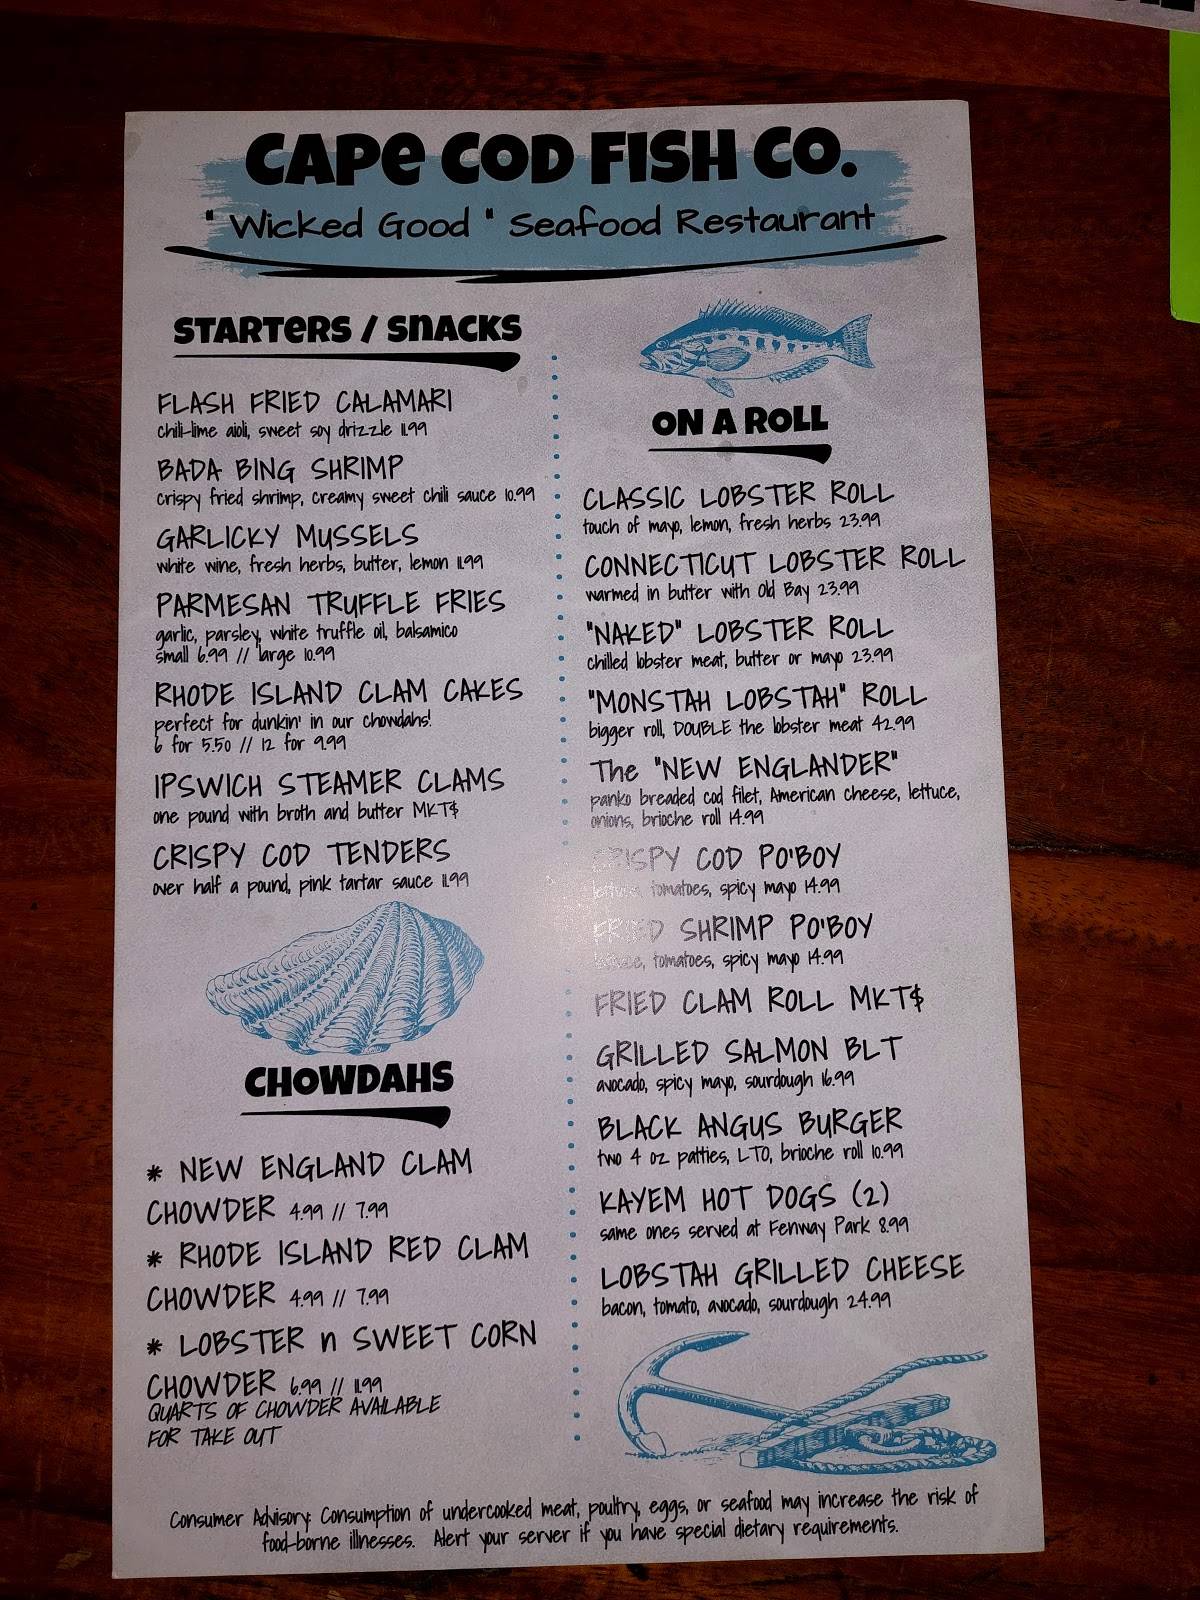 CAPE COD FISH CO.
" Wicked Good " Seafood Restaurant
STARTERS / SNACKS
FLASH FRIED CALAMARI
chili-lime aioli, sweet soy drizzle 11.99
BADA BING SHRIMP
crispy fried shrimp, creamy sweet chili sauce 10.99
GARLICKY MUSSELS
white wine, fresh herbs, butter, lemon 11.99
PARMESAN TRUFFLE FRIES
garlic, parsley, white truffle oil, balsamico
small 6.99 // large 10.99
RHODE ISLAND CLAM CAKES
perfect for dunkin' in our chowdahs!
6 for 5.50 // 12 for 9.99
IPSWICH STEAMER CLAMS
one pound with broth and butter MKT$
CRISPY COD TENDERS
over half a pound, pink tartar sauce 11.99
CHOWDAHS
* NEW ENGLAND CLAM
CHOWDER 4.99 // 7.99
* RHODE ISLAND RED CLAM
CHOWDER 4.99 // 7.99
* LOBSTER n SWEET CORN
CHOWDER 6.99 // 11.99
QUARTS OF CHOWDER AVAILABLE
FOR TAKE OUT
ON A ROLL
CLASSIC LOBSTER ROLL
touch of mayo, lemon, fresh herbs 23.99
CONNECTICUT LOBSTER ROLL
warmed in butter with Old Bay 23.99
"NAKED" LOBSTER ROLL
chilled lobster meat, butter or mayo 23.99
"MONSTAH LOBSTAH" ROLL
bigger roll, DOUBLE the lobster meat 42.99
The "NEW ENGLANDER"
panko breaded cod filet, American cheese, lettuce,
onions, brioche roll 14.99
CRISPY COD PO'BOY
lettuce, tomatoes, spicy mayo 14.99
FRIED SHRIMP PO'BOY
lettuce, tomatoes, spicy mayo 14.99
FRIED CLAM ROLL MKT$
GRILLED SALMON BLT
avocado, spicy mayo, sourdough 16.99
BLACK ANGUS BURGER
two 4 oz patties, LTO, brioche roll 10.99
KAYEM HOT DOGS (2)
same ones served at Fenway Park 8.99
LOBSTAH GRILLED CHEESE
bacon, tomato, avocado, sourdough 24.99
Consumer Advisory: Consumption of undercooked meat, poultry, eggs, or seafood may increase the risk of
food-borne illnesses. Alert your server if you have special dietary requirements.